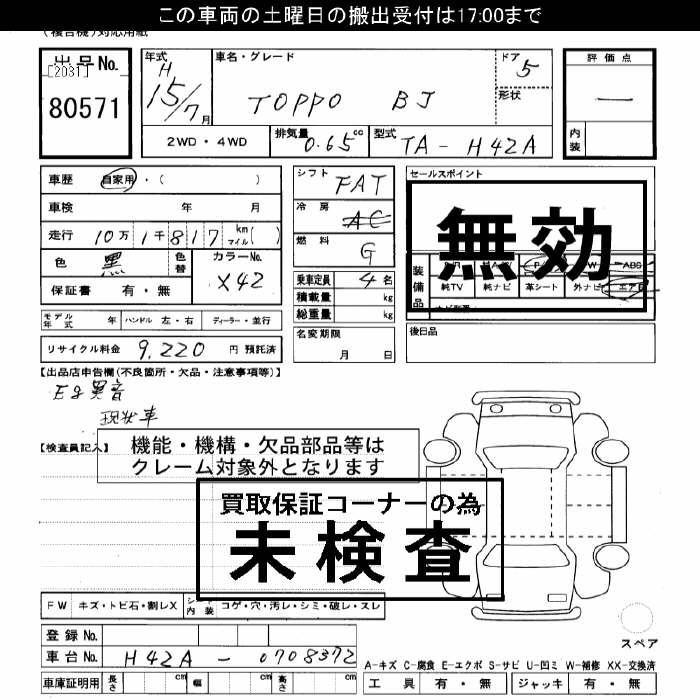 この車両の土曜日の搬出受付は17:00まで
(複合機)対応用紙
出品No.
[2031]
80571
年式
H
15/7月
車名・グレード
TOPPO BJ
ドア
5
形状
評価点
—
内装
2WD・4WD
排気量
0.65cc
型式
TA-H42A
車歴
自家用・( )
車検 年 月
走行 10万1千817 km マイル( )
色 黒
色替
カラーNo.
X42
保証書 有・無
シフト
FAT
冷房
AC
燃料
G
乗車定員 4名
積載量 kg
総重量 kg
セールスポイント
無効
装備品
S/R 社外AW P/S P/W ABS
純TV 純ナビ 革シート 外ナビ エアB
モデル年式 年 ハンドル 左・右 ディーラー・並行
名変期限
月 日
後日品
リサイクル料金 9,220 円 預託済
【出品店申告欄(不良箇所・欠品・注意事項等)】
Eg異音
現状車
【検査員記入】
機能・機構・欠品部品等は
クレーム対象外となります
買取保証コーナーの為
未検査
FW キズ・トビ石・割レX
シート内装 コゲ・穴・汚レ・シミ・破レ・スレ
登録No.
車台No. H42A-0708372
スペア
A-キズ C-腐食 E-エクボ S-サビ U-凹ミ W-補修 XX-交換済
車庫証明用 長さ cm 幅 cm 高さ cm
工具 有・無 ジャッキ 有・無